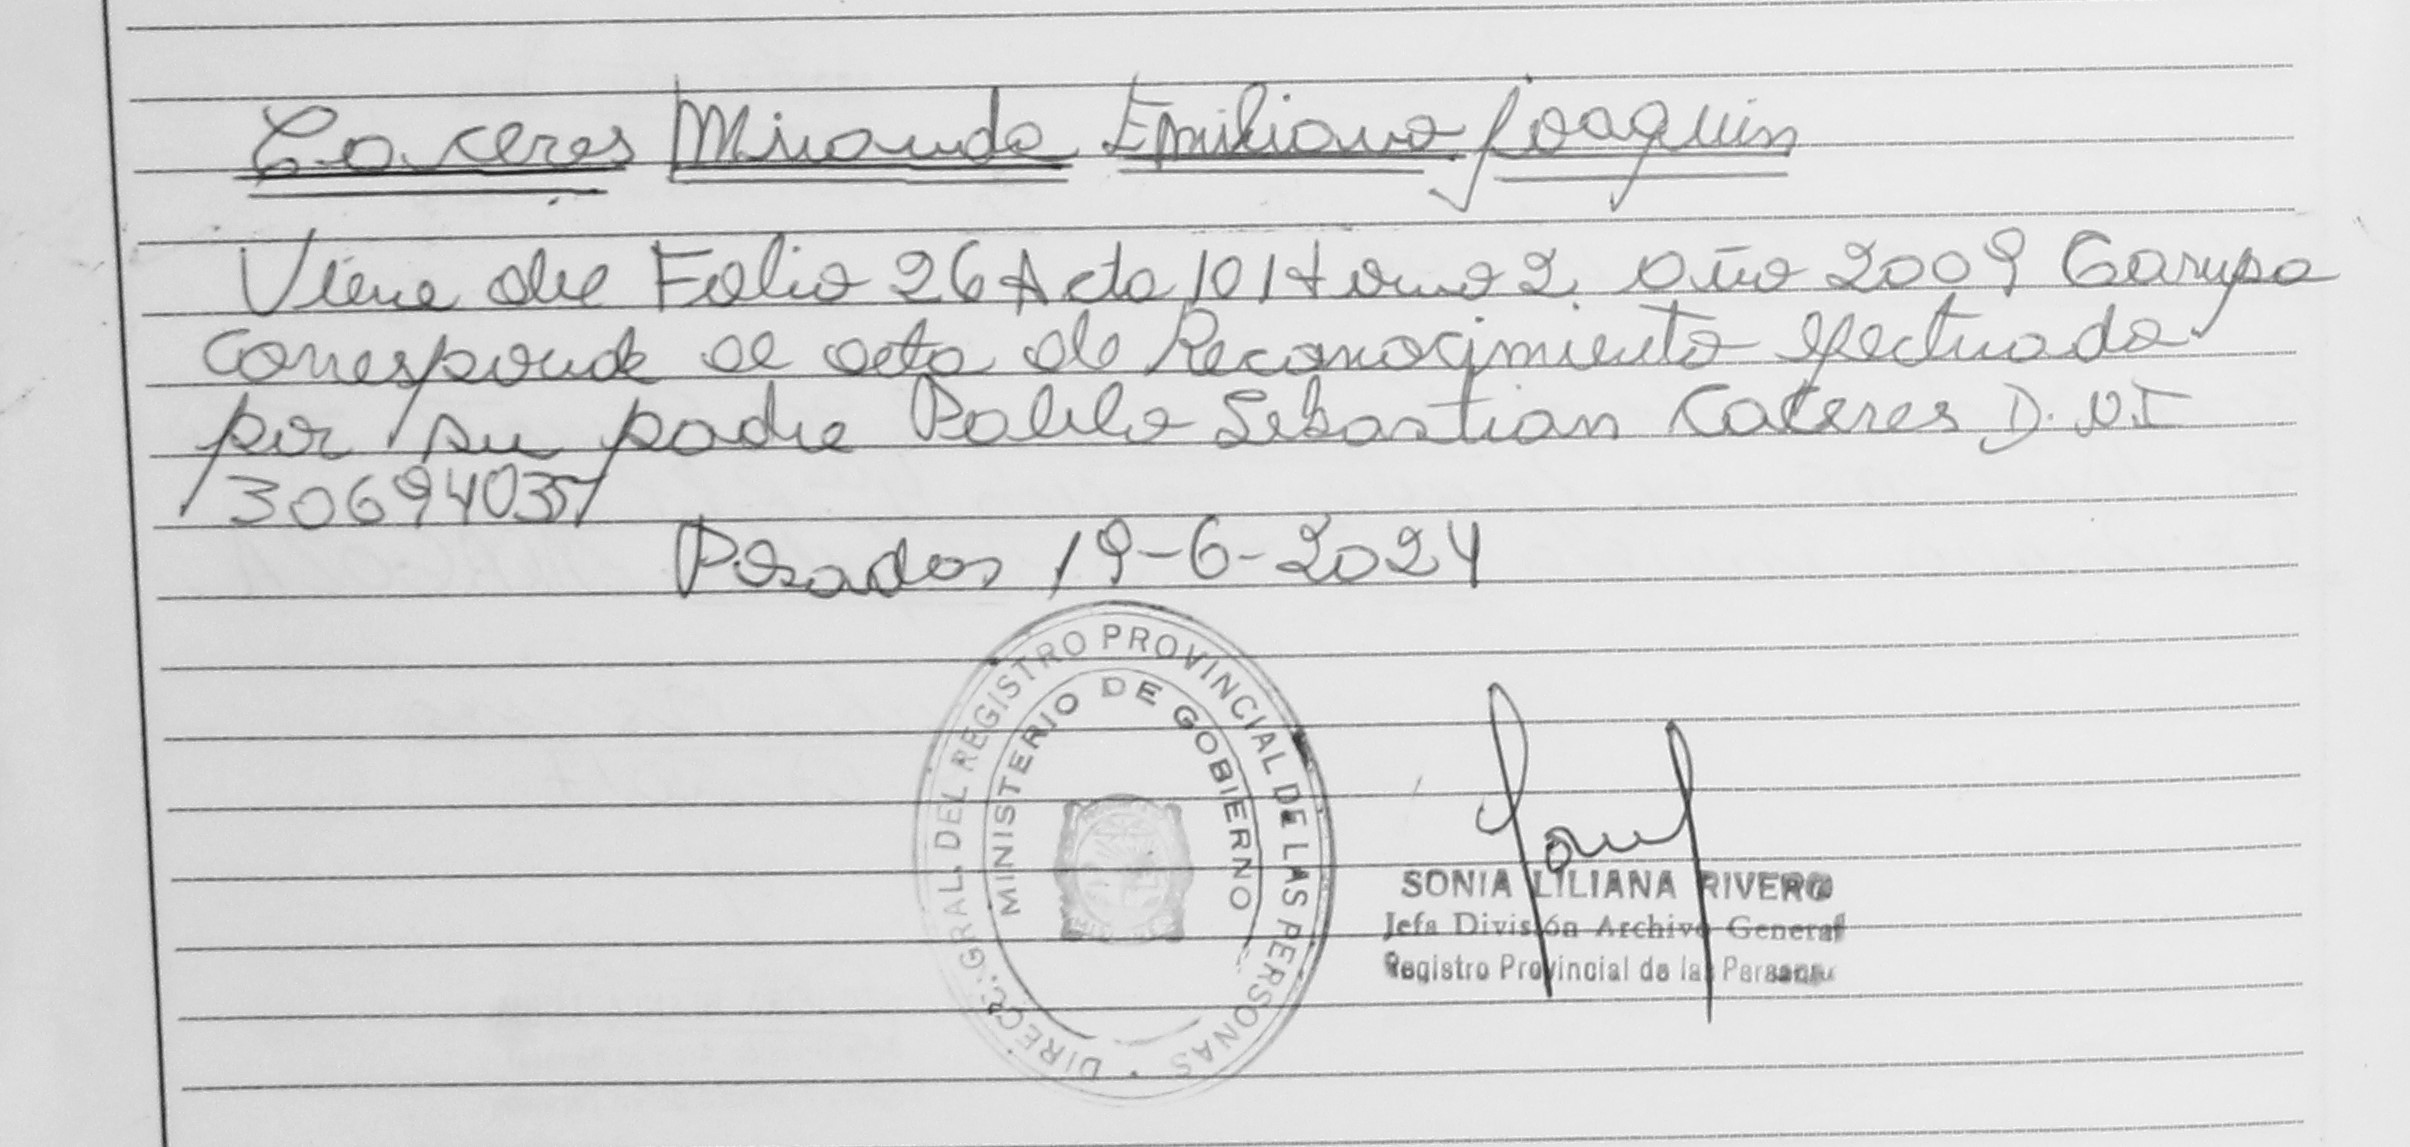 Caceres Miranda Emiliano Joaquin
Viene de Folio 26 Acta 101 tomo 2. Año 2009 Garupa
Corresponde al acta de Reconocimiento efectuada
por su padre Pablo Sebastian Caceres D.N.I
30694035
Posadas 19-6-2024
DIRECC. GRAL. DEL REGISTRO PROVINCIAL DE LAS PERSONAS
MINISTERIO DE GOBIERNO
SONIA LILIANA RIVERO
Jefa División Archivo General
Registro Provincial de las Personas